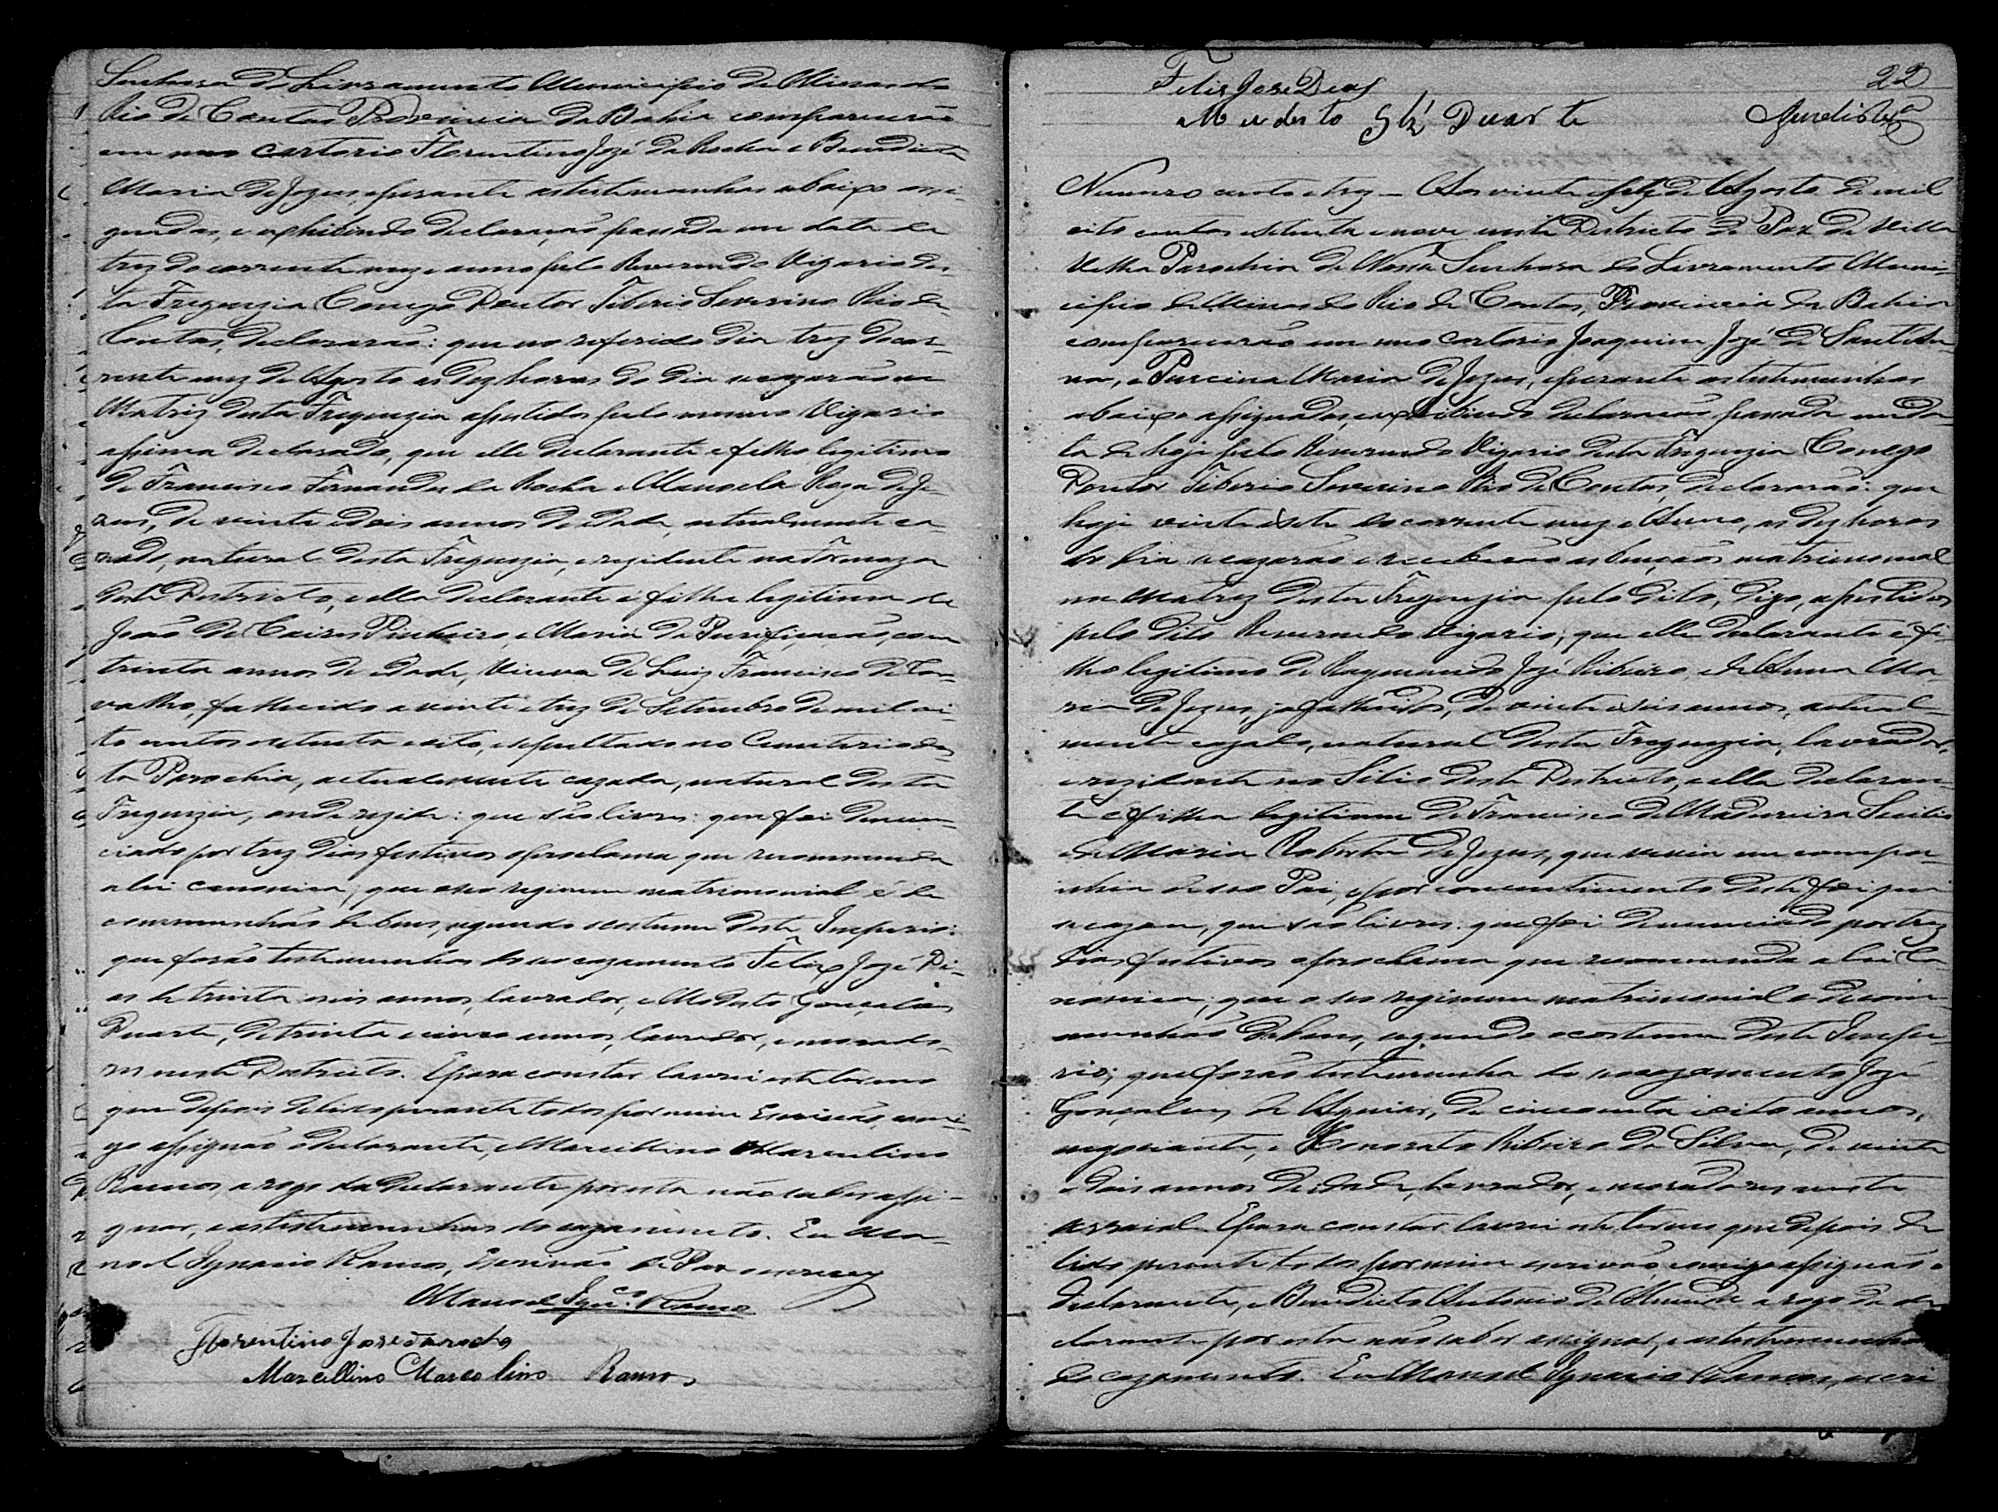 Senhora do Livramento Municipio de Minas do
Rio de Contas Provincia da Bahia comparecerão
em meo cartorio Florentino José da Rocha e Benedicta
Maria de Jezus, e perante as testemunhas abaixo assi-
gnadas, e exhibindo declaração passada em data de
trez do corrente mez e anno pelo Reverendo Vigario des-
ta Freguezia Conego Doutor Tiberio Severino Rio de
Contas, declararão: que no referido dia trez do cor-
rente mez de Agosto as dez horas do dia se cazarão na
Matriz desta Freguezia assistidos pelo mesmo Vigario
assima declarado, que elle declarante é filho legitimo
de Francisco Fernandes da Rocha e Manoela Roza de Je-
zus, de vinte e dois annos de idade, actualmente ca-
zado, natural desta Freguezia, e rezidente na
deste Destricto, e ella declarante é filha legitima de
João de Caires Pinheiro, e Maria da Purificação, com
trinta annos de idade, Viuva de Luiz Francisco de Car-
valho, fallecido a vinte e trez de Setembro de mil oi-
to centos setenta e oito, e sepultado no Cemiterio des-
ta Parochia, actualmente cazada, natural desta
Freguezia, onde rezide: que são livres: que foi denun-
ciado por trez dias festivos o proclama que recommenda
a lei canonica; que o seo regimem matrimonial é de
communhão de bens, segundo o costume deste Imperio:
que forão testemunhas do seo cazamento Felix José Di-
as de trinta e seis annos, lavrador, e Modesto Gonçalves
Duarte, de trinta e cinco annos, lavrador, e morado-
res neste Destricto. E para constar lavrei este termo
que depois de lido perante todos por mim Escrivão, comi-
go assignão o declarante, Marcellino Marcolino
Ramos, a rogo da declarante por esta não saber assi-
gnar, e as testemunhas do cazamento. Eu Ma-
noel Ignacio Ramos, Escrivão de Paz escrevy
Manoel Ign.co Ramos
Florentino Jose da rocha
Marcellino Marcolino Ramos
22
Felis Jose Deas
Modesto Glz Duarte
Numero cento e trez — Aos vinte e sete de Agosto de mil
oito centos setenta e nove neste Destricto de Paz de Villa
Velha Parochia de Nossa Senhora do Livramento Muni-
cipio de Minas do Rio de Contas, Provincia da Bahia
comparecerão em meo cartorio Joaquim José de Sant'An-
na, e Purcina Maria de Jezus, e perante as testemunhas
abaixo assignadas, e exhibindo declaração passada em da-
ta de hoje pelo Reverendo Vigario desta Freguezia Conego
Doutor Tiberio Severino Rio de Contas, declararão: que
hoje vinte e sete do corrente mez e Anno, as dez horas
do dia se cazarão e receberão as bençãos matrimonial
na Matriz desta Freguezia pelo dito, digo, assistidos
pelo dito Reverendo Vigario; que elle declarante é fi-
lho legitimo de Raymundo José Ribeiro, e de Anna Ma-
ria de Jezus, ja fallecidos, de vinte e seis annos, actual-
mente cazado, natural desta Freguezia, lavrador,
e rezidente no Sitio deste Destricto, e ella declaran-
te é filha legitima de Francisco de Madureira
e de Maria de Jezus, que vevia em compa-
nhia de seo Pai, e por concentimento deste foi que
se cazou, que são livres: que foi denunciado por trez
dias festivos o proclama que recommenda a lei Ca-
nonica; que o seo regimem matrimonial é de com-
munhão de bens, segundo o costume deste Impe-
rio; que forão testemunha do seo cazamento José
Gonçalves de Aguiar, de cincoenta e oito annos,
negociante, e Honorato Ribeiro da Silva, de vinte
e dois annos de idade, lavrador, e moradores neste
Arraial. E para constar lavrei este termo que depois de
lido perante todos por mim escrivão, comigo assignão o
declarante, e Benedicto Antonio de a rogo da de-
clarante por esta não saber assignar, e as testemunhas
do cazamento. Eu Manoel Ignacio Ramos, escri